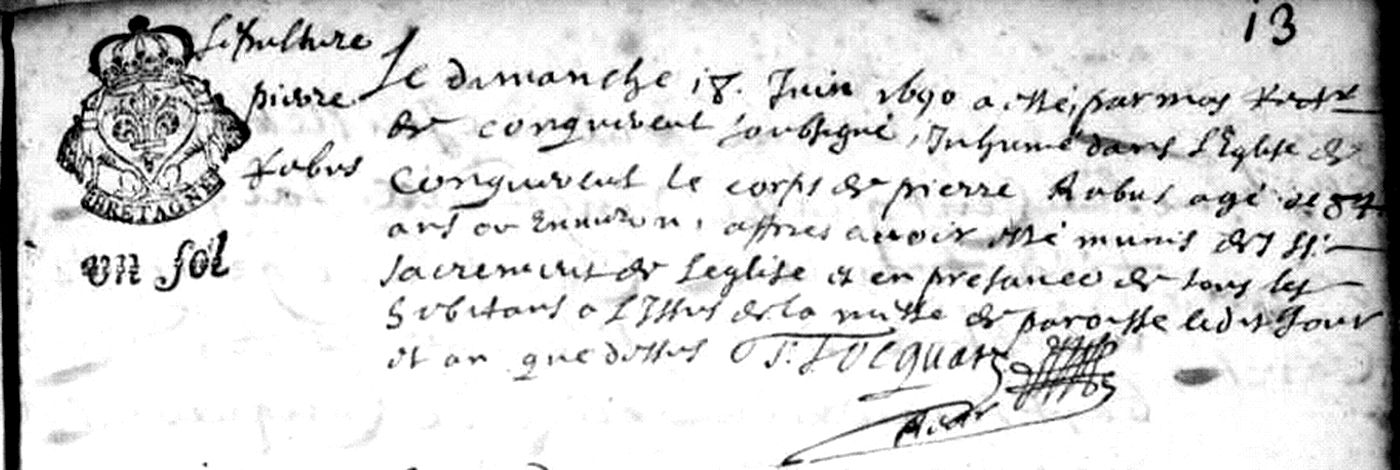 13
Sepulture
pierre
Robus
BRETAGNE
VN SOL
Le dimanche 18. Juin 1690 a esté, par moy Rectr
de conquereul soubsigné, Inhumé dans L'Eglise de
Conquereul le corps de pierre Robus agé de 84
ans ou Enuiron, apres auoir esté munis des Sts
sacrements de Leglise et en presance de tous les
habitans a L'Issue de la messe de paroisse ledit Jour
et an que dessus